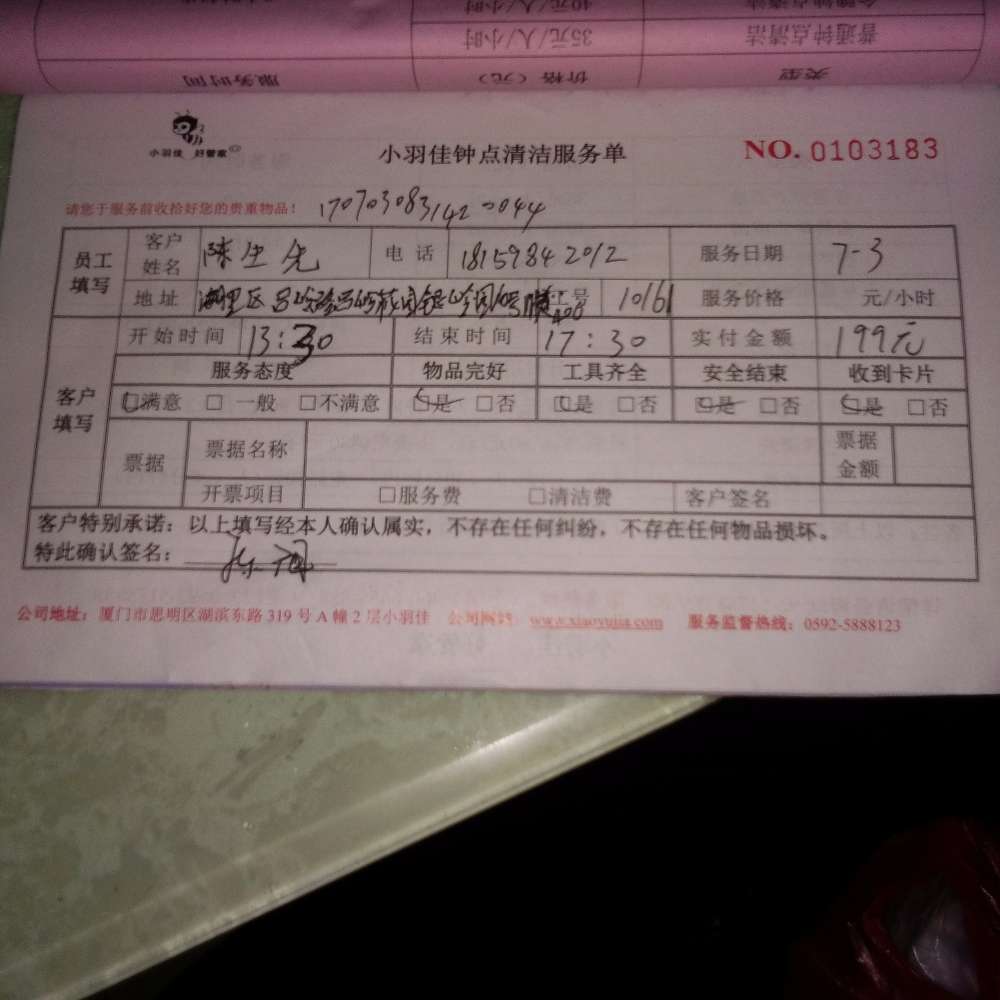 金牌钟点清洁 40元/人/小时
普通钟点清洁 35元/人/小时
类型 价格（元） 服务时间
小羽佳 好管家
小羽佳钟点清洁服务单
NO. 0103183
请您于服务前收拾好您的贵重物品！ 170703083142-0044
员工填写 客户姓名 陈生先 电话 18159842012 服务日期 7-3
地址 湖里区 工号 10161 服务价格 元/小时
客户填写 开始时间 13:30 结束时间 17:30 实付金额 199元
服务态度 物品完好 工具齐全 安全结束 收到卡片
□满意 □一般 □不满意 □是 □否 □是 □否 □是 □否 □是 □否
票据 票据名称 票据金额
开票项目 □服务费 □清洁费 客户签名
客户特别承诺：以上填写经本人确认属实，不存在任何纠纷，不存在任何物品损坏。
特此确认签名：
公司地址：厦门市思明区湖滨东路 319 号 A 幢 2 层小羽佳 公司网站：www.xiaoyujia.com 服务监督热线：0592-5888123